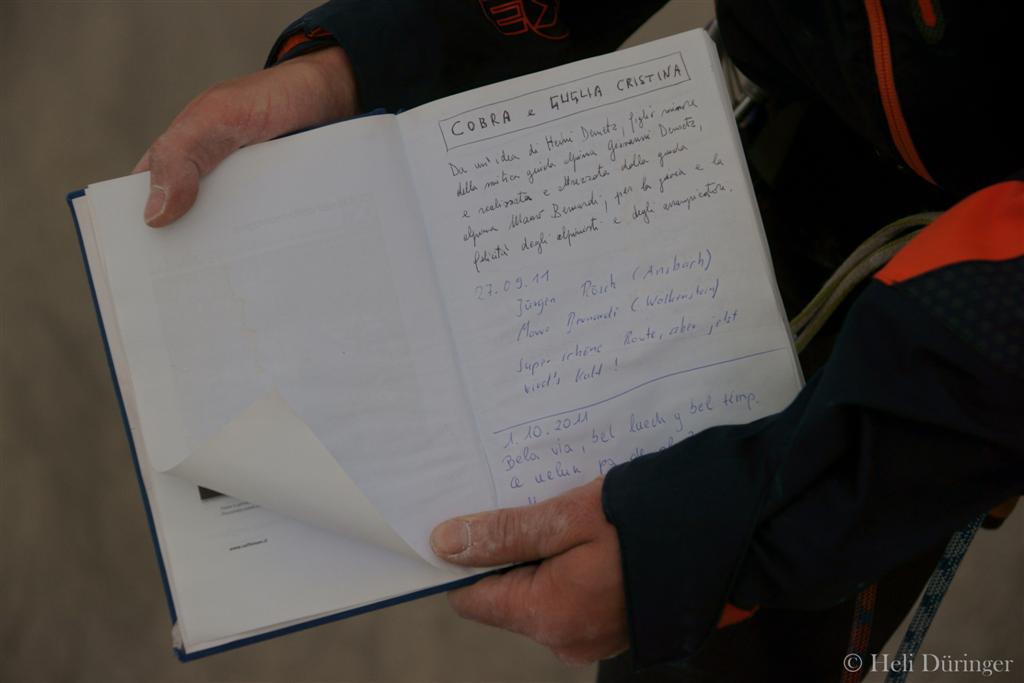 COBRA e GUGLIA CRISTINA
Da un'idea di Heini Demetz, figlio minore
della mitica guida alpina Giovanni Demetz,
e realizzata e attrezzata dalla guida
alpina Mauro Bernardi, per la gioia e la
felicità degli alpinisti e degli arrampicatori.
27.09.11
Jürgen Rösch (Ansbach)
Mauro Bernardi (Wolkenstein)
Super schöne Route, aber jetzt
wird's kalt!
1.10.2011
Bela via, bel luech y bel temp.
© Heli Düringer